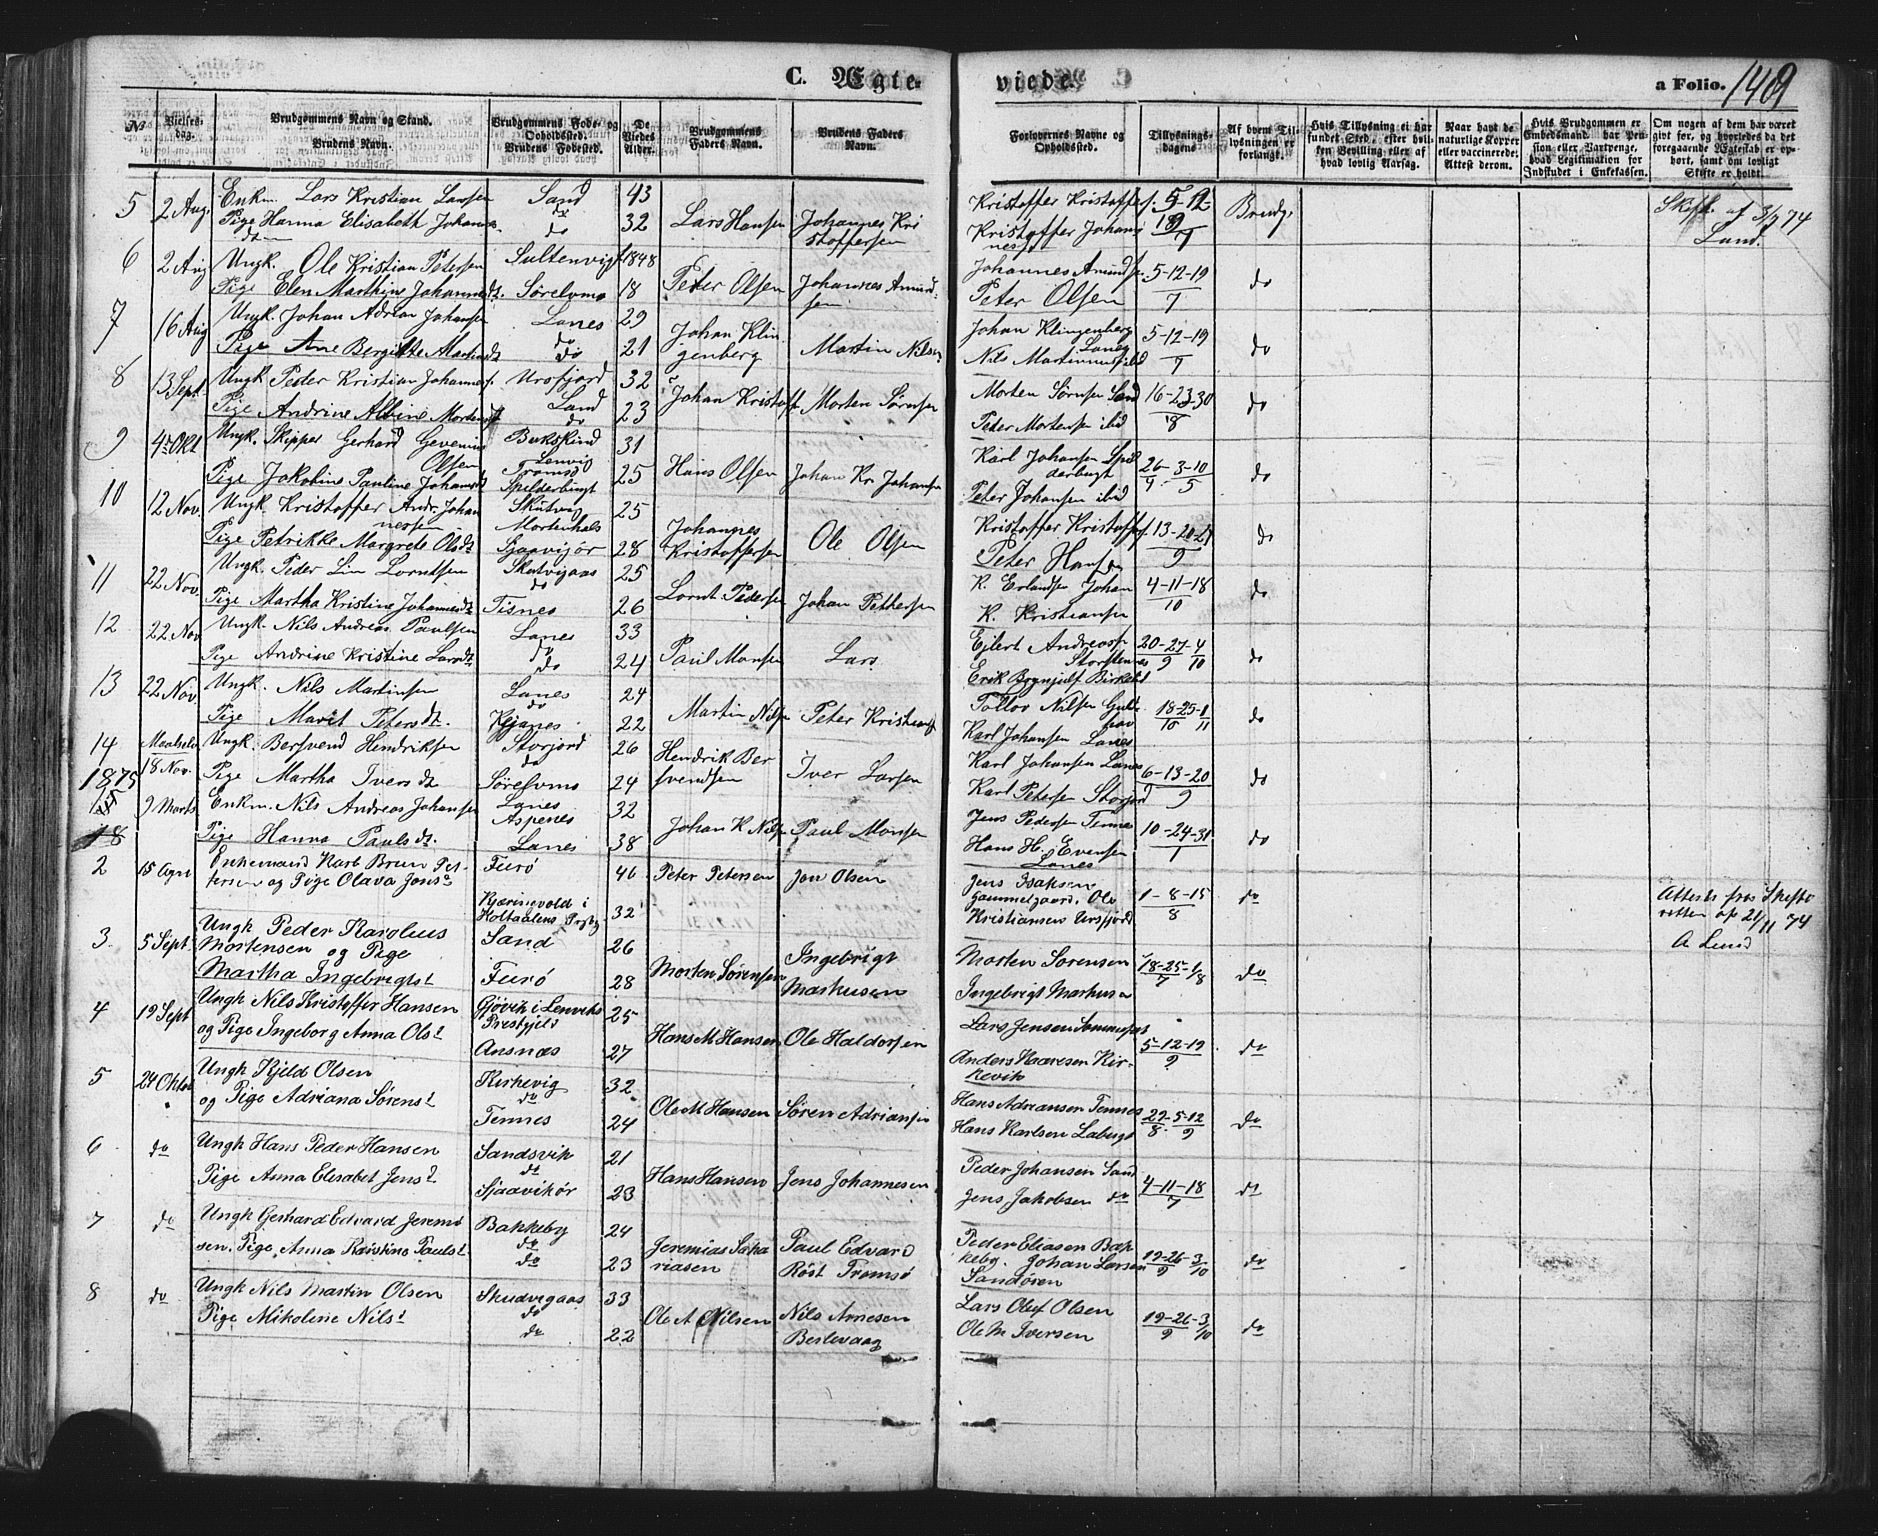 C. Ægte-
viede.
a Folio. 1409
No
Vielses-dag.
Brudgommens Navn og Stand.
Brudens Navn.
Brudgommens Føde- og Opholdssted.
Brudens Fødested.
De Viedes Alder.
Brudgommens Faders Navn.
Brudens Faders Navn.
Forlovernes Navne og Opholdssted.
Tillysnings-dagene
Af hvem Tillysningen er forlangt.
Hvis Tillysning ei har fundet Sted, efter hvilken Bevilling eller af hvad lovlig Aarsag.
Naar havt de naturlige Kopper eller vaccinerede; Attest derom.
Hvis Brudgommen er Embedsmand, har Pension eller Vartpenge, hvad Legitimation for Indskudet i Enkekassen.
Om nogen af dem har været givt før, og hvorledes da det foregaaende Ægteskab er ophørt, samt om lovligt Skifte er holdt.
5 2 Aug. Enkm. Lars Kristian Larsen Sand do 43 Lars Hansen Johannes Kristoffersen Kristoffer Kristoffers. 5-12-19/7 Brudg. Skift. af 3/7 74 Lund.
Pige Hanna Elisabeth Johannesdatter do 32 Kristoffer Johannes
6 2 Aug Ungk. Ole Kristian Petersen Sultenvig 1848 Peter Olsen Johannes Amundsen Johannes Amunds. 5-12-19/7 do
Pige Elen Marthine Johannesdt. Sørelvmo 18 Peter Olsen
7 16 Aug Ungk. Johan Adrian Johansen Lanes do 29 Johan Klingenberg Martin Nilsen Johan Klingenberg Lanes 5-12-19/7 do
Pige Ane Bergitte Martinsdt do 21 Nils Martinussen ibid
8 13 Sept. Ungk Peder Kristian Johannes. Ursfjord 32 Johan Kristoff. Morten Sørnsen Morten Sørnsen Sand 16-23-30/8 do
Pige Andrine Albine Mortensdt Sand do 23 Peder Mortensen ibid
9 4 Okt Ungk. Skipper Gerhard Gevenius Olsen Bukskind Lenvig 31 Hans Olsen Johan Kr Johansen Karl Johansen Spilderbugt 26/4-3-10/5 do
Pige Jakobine Pauline Johansdt Tromsø Spilderbugt 25 Peter Johansen ibid
10 12 Nov. Ungk. Kristoffer Andr. Johannessen Skutvig Mortenhals 25 Johannes Kristoffersen Ole Olsen Kristoffer Kristoffers. 13-20-27/9 do
Pige Petrikke Margrete Olsdt Sjaavikør 28 Peter Hansen
11 22 Nov Ungk. Peder Lorntsen Skutvigaas do 25 Lornt Pedersen Johan Pettersen K. Erlandsen Johan 4-11-18/10 do
Pige Martha Kristine Johannesdt Tisnes 26 K. Kristiansen
12 22 Nov Ungk. Nils Andreas Paulsen Lanes do 33 Paul Monsen Lars Ejlert Andreass. Storstennes 20-27/9-4/10 do
Pige Andrine Kristine Larsdt do 24 Erik Brynjulf Birkelid
13 22 Nov Ungk. Nils Martinsen Lanes do 24 Martin Nilsen Peter Kristians. Tollov Nilsen Guldhav 18-25/10-1/11 do
Pige Marit Petersdt. Kjanes 22 Karl Johansen Lanes
14 Maalselv 18 Nov. Ungk. Bersvend Hendriksen Storjord do 26 Hendrik Bersvendsen Iver Larsen Karl Johansen Lanes 6-13-20/9 do
Pige Martha Iversdt Sørelvmo 24 Karl Petersen Storjord
1875
9 Marts Enkm. Nils Andreas Johansen Lanes Aspenes 32 Johan K Nilsen Paul Monsen Jens Pedersen Tennes 10-24-31/1 do
Pige Hanna Paulsdt. Lanes 38 Hans H. Evensen Lanes
2 15 Apri Enkemand Karl Brun Pettersen og Pige Olava Jonsdt Furø 46 Peter Petersen Jon Olsen Jens Isaksen Gammelgaard, Ole Kristiansen Ursfjord 1-8-15/8 do Attest fra Skifteretten af 21/11 74 A Lund
Kjærinsvold i Holtaalens Prstg 32
3 5 Sept Ungk Peder Karolius Mortensen og Pige Martha Ingebrigts t Sand 26 Morten Sørensen Ingebrigt Markusen Morten Sørensen 18-25/7-1/8 do
Furø 28 Ingebrigt Markusen
4 19 Sept Ungk Nils Kristoffer Hansen Gjøvik i Lenviks Prestgjeld 25 Hans M Hansen Ole Haldorsen Lars Jensen 5-12-19/9 do
og Pige Ingeborg Anna Ols t Ansnæs 27 Anders Haaresen Kirkevik
5 24 Oktob Ungk Kjeld Olsen Kirkevig do 32 Ole M Hansen Søren Adriansen Hans Adriansen Tennes 29/8-5-12/9 do
og Pige Adriana Sørens t Tennes 24 Hans Karlsen Laberg
6 do Ungk Hans Peder Hansen Sandsvik do 21 Hans Hansen Jens Johannesen Peder Johansen Sand 4-11-18/7 do
Pige Anna Elisabet Jens t Sjaavikør 23 Jens Jakobsen do
7 do Ungk Gerhard Edvard Jeremiasen. Pige Anna Kristine Pauls t Bakkeby do 24 Jeremias Sakariasen Paul Edvard Røst Tromsø Peder Eliasen Bakkeby. Johan Larsen Sandøren 19-26/9-3/10 do
do 23
8 do Ungk Nils Martin Olsen Skudvigaas do 33 Ole A Nilsen Nils Arnesen Berlevaag Lars Oluf Olsen 19-26/9-3/10 do
Pige Mikoline Nils t do 22 Ole M Iversen